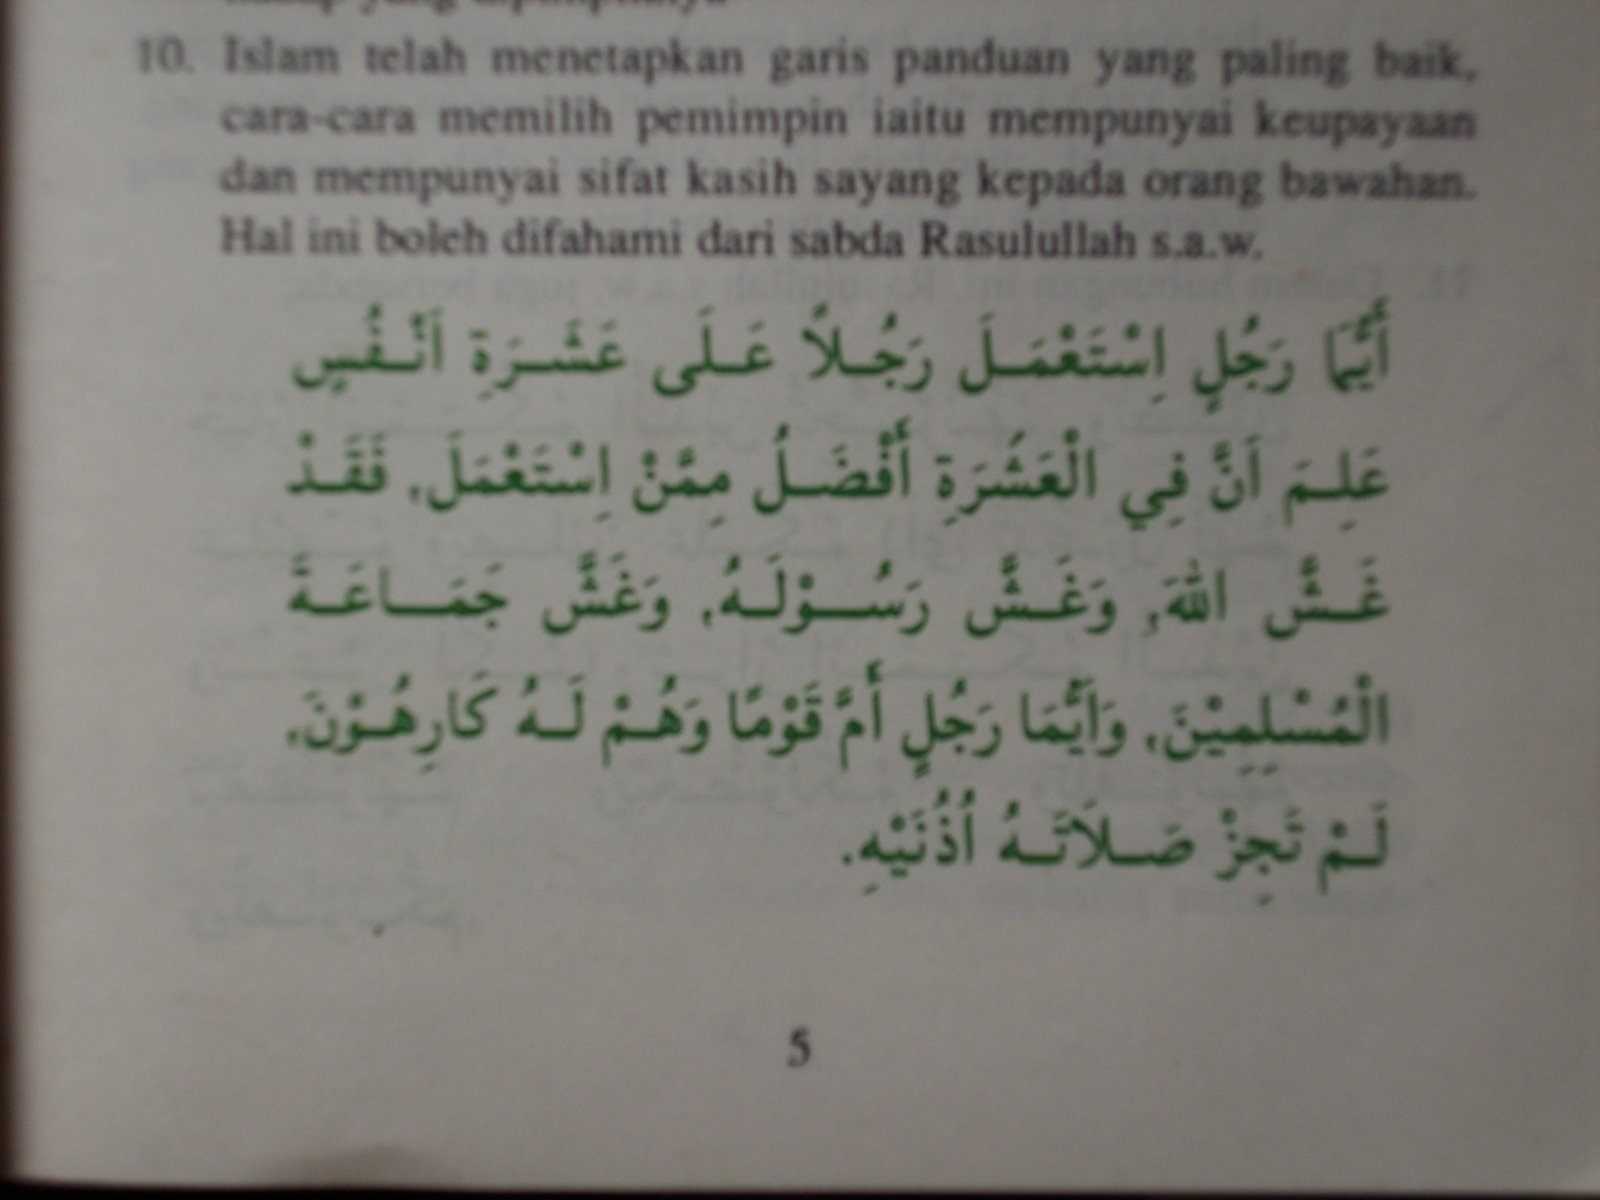 10. Islam telah menetapkan garis panduan yang paling baik,
cara-cara memilih pemimpin iaitu mempunyai keupayaan
dan mempunyai sifat kasih sayang kepada orang bawahan.
Hal ini boleh difahami dari sabda Rasulullah s.a.w.
أَيُّمَا رَجُلٍ اِسْتَعْمَـلَ رَجُـلاً عَـلَى عَشَـرَةِ اَنْـفُسٍ
عَلِـمَ اَنَّ فِي الْعَشُرَةِ أَفْضَـلُ مِمَّنْ اِسْتَعْمَلَ, فَقَـدْ
غَـشَّ اللهَ, وَغَـشَّ رَسُـوْلَـهُ, وَغَشَّ جَمَـاعَـةَ
الْمُسْلِمِيْنَ, وَاَيُّمَا رَجُلٍ أَمَّ قَوْمًا وَهُـمْ لَـهُ كَارِهُـوْنَ,
لَـمْ تَجِزْ صَـلاَتَـهُ اُذُنَيْهِ.
5